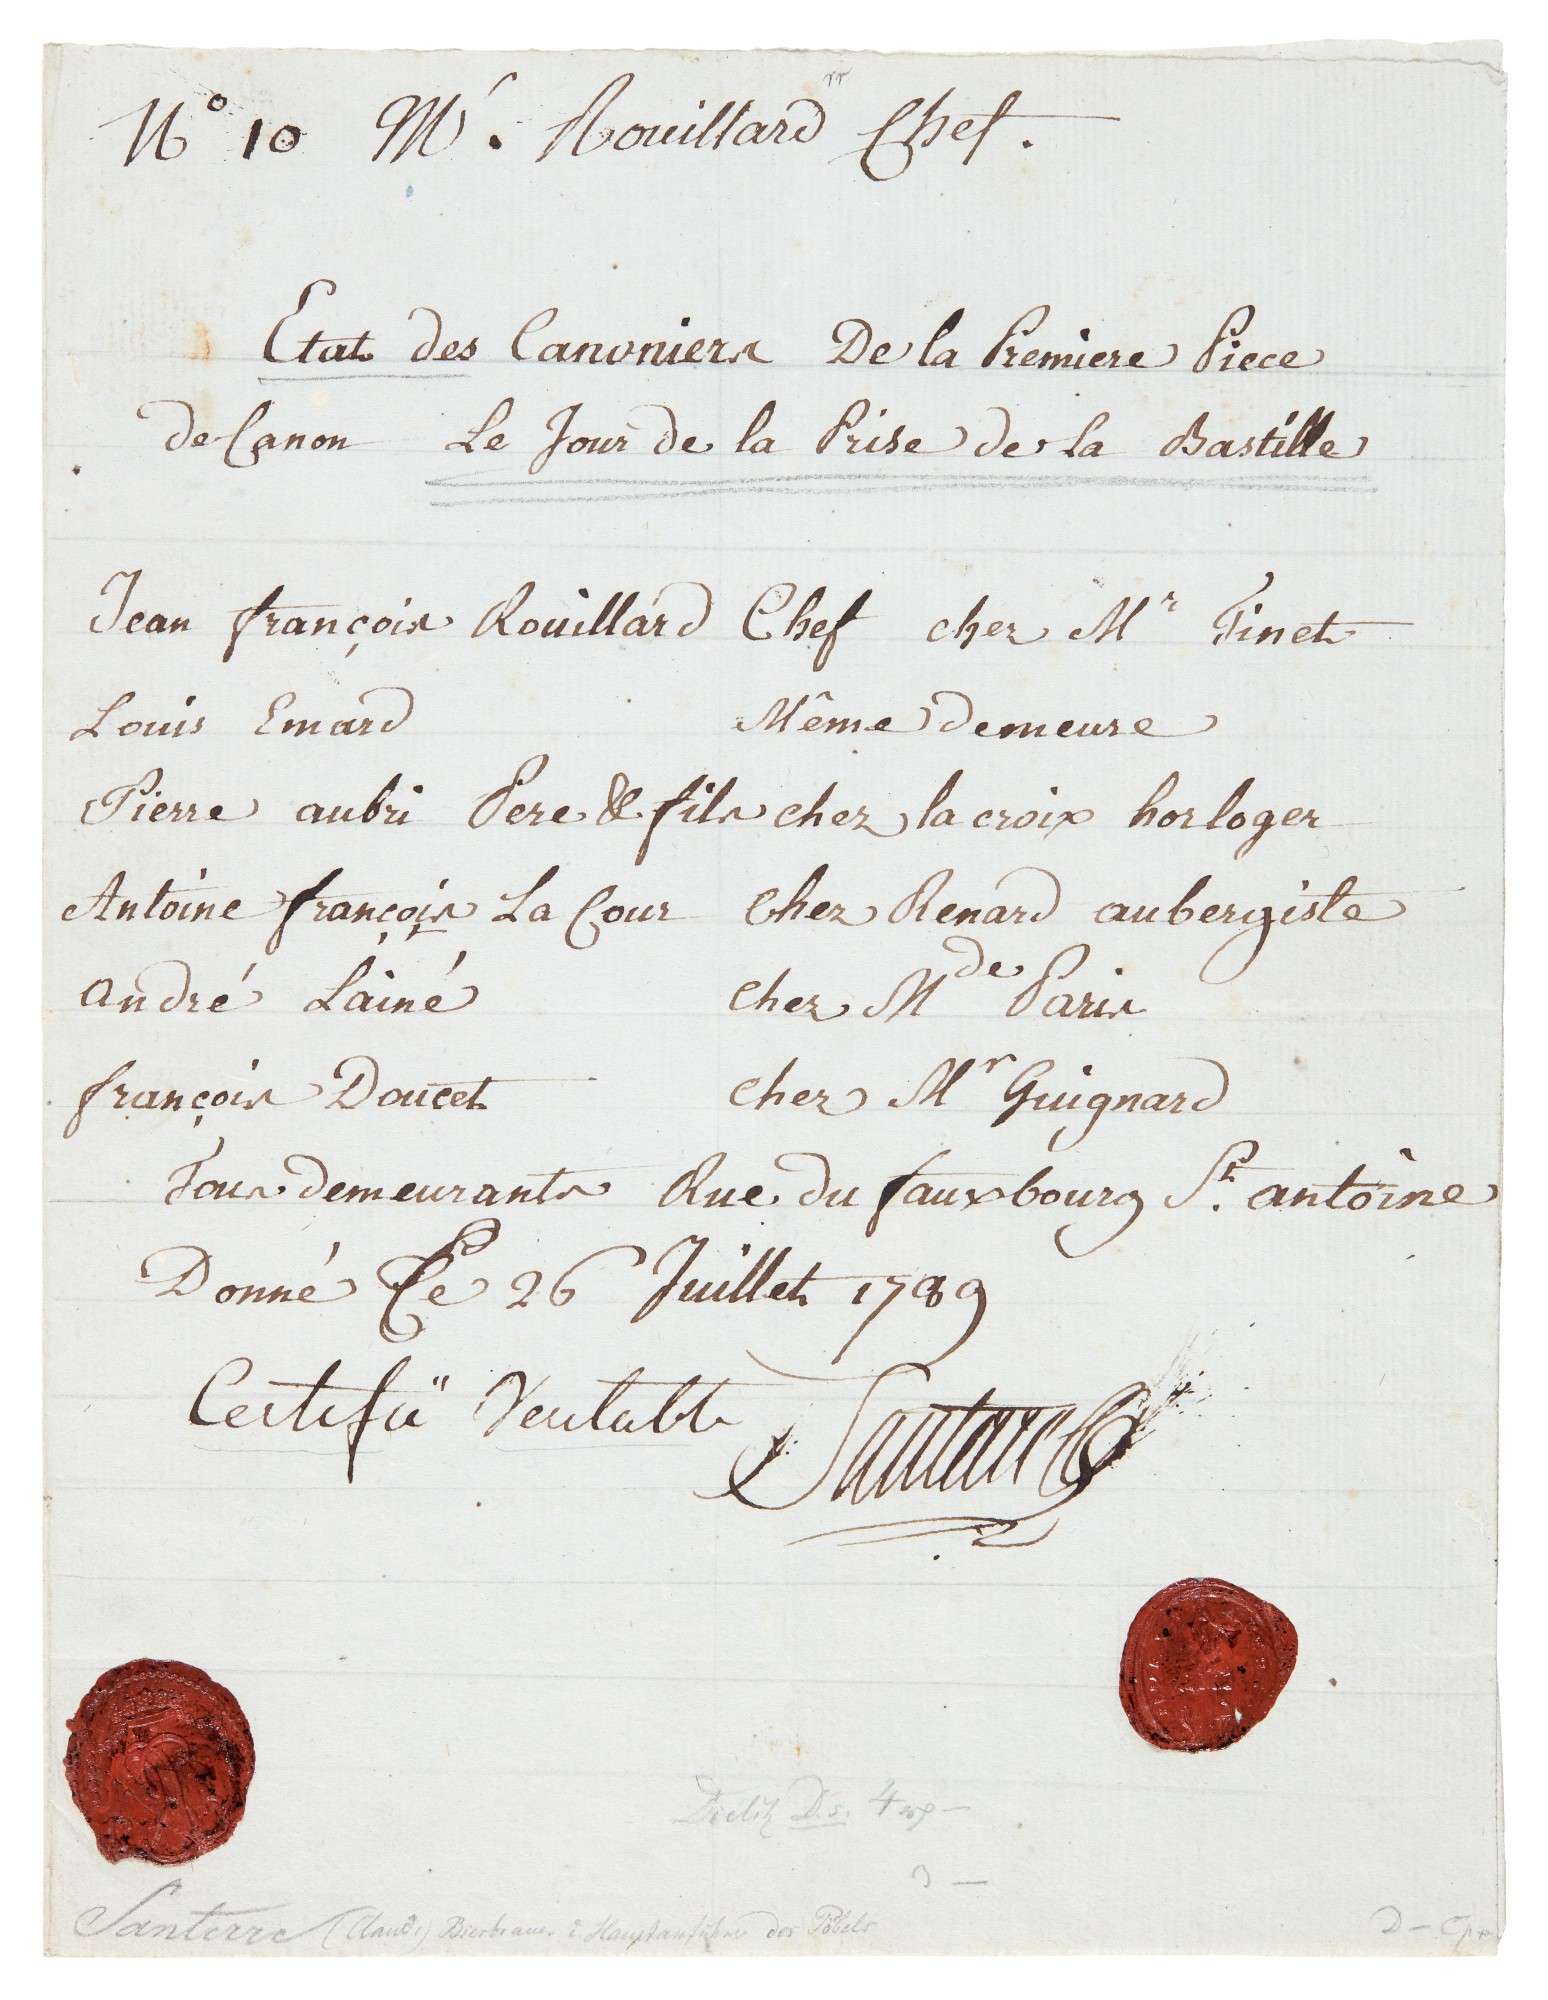 N° 10 Mr. Rouillard Chef.
Etat des Canoniers De la Premiere Piece
de Canon Le Jour de la Prise de la Bastille
Jean françois Rouillard Chef chez Mr Finet
Louis Emard Même demeure
Pierre aubri Pere & fils chez la croix horloger
Antoine françois La Cour chez Renard aubergiste
André Lainé chez Mde Paris
françois Doucet chez Mr Guignard
Tous demeurants Rue du fauxbourg St. antoine
Donné Ce 26 Juillet 1789
Certifié Veritable Santerre
D.s. 4
3 —
Santerre (Claude) Bierbrauer & Hauptanführer des Pöbels